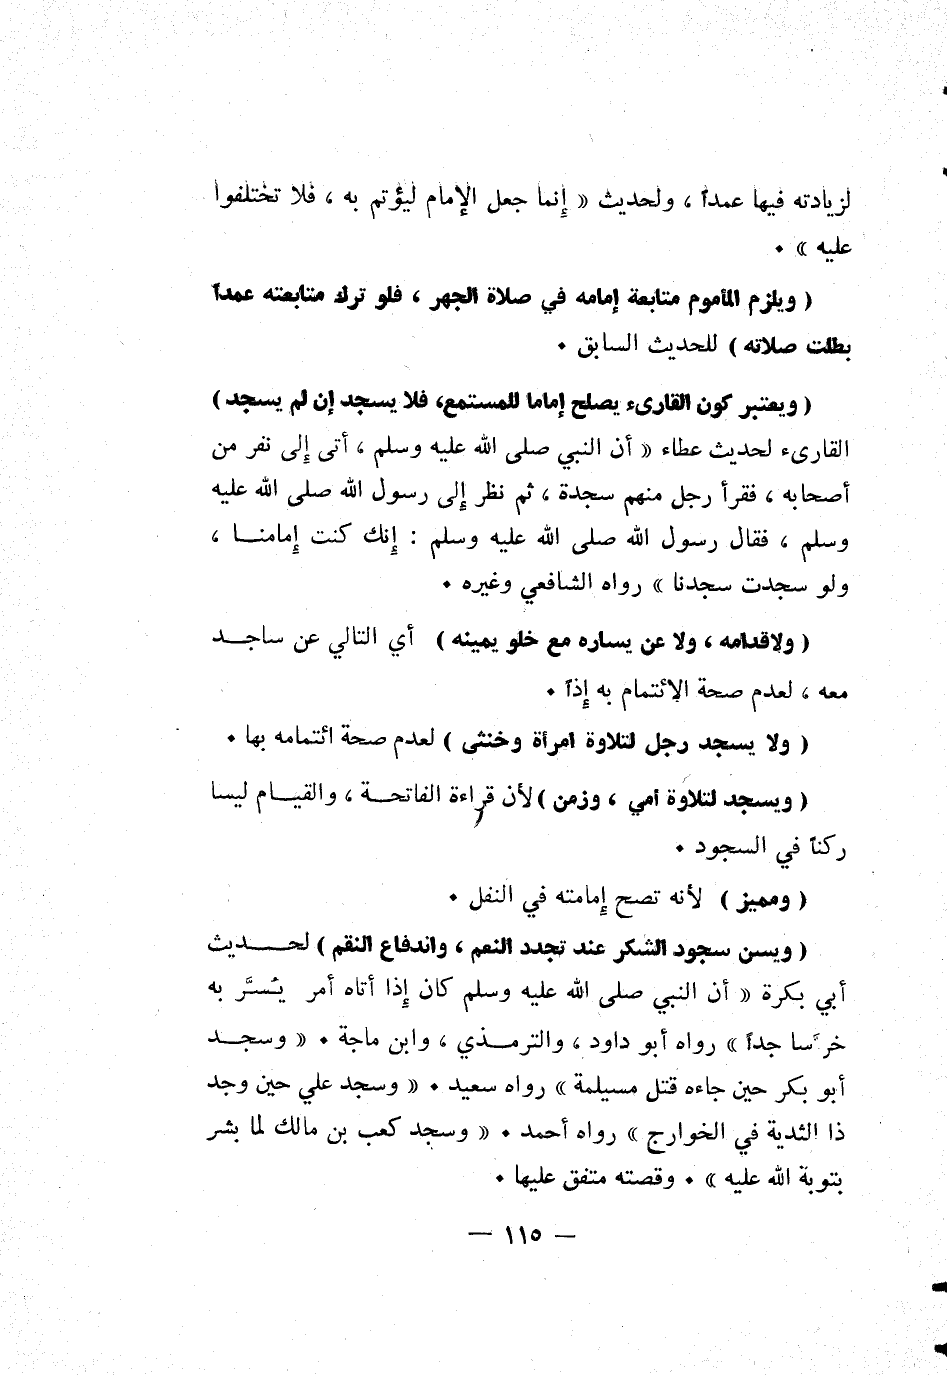 لزيادته فيها عمداً ، ولحديث « إنما جعل الإمام ليؤتم به ، فلا تختلفوا
عليه » ٠
( ويلزم المأموم متابعة إمامه في صلاة الجهر ، فلو ترك متابعته عمداً
بطلت صلاته ) للحديث السابق ٠
( ويعتبر كون القارىء يصلح إماما للمستمع، فلا يسجد إن لم يسجد )
القارىء لحديث عطاء « أن النبي صلى الله عليه وسلم ، أتى إلى نفر من
أصحابه ، فقرأ رجل منهم سجدة ، ثم نظر إلى رسول الله صلى الله عليه
وسلم ، فقال رسول الله صلى الله عليه وسلم : إنك كنت إمامنـا ،
ولو سجدت سجدنا » رواه الشافعي وغيره ٠
( ولاقدامه ، ولا عن يساره مع خلو يمينه ) أي التالي عن ساجـد
معه ، لعدم صحة الإئتمام به إذاً ٠
( ولا يسجد رجل لتلاوة امرأة وخنثى ) لعدم صحة ائتمامه بها ٠
( ويسجد لتلاوة أمي ، وزمن ) لأن قراءة الفاتحـة ، والقيـام ليسا
ركناً في السجود ٠
( ومميز ) لأنه تصح إمامته في النفل ٠
( ويسن سجود الشكر عند تجدد النعم ، واندفاع النقم ) لحـديث
أبي بكرة « أن النبي صلى الله عليه وسلم كان إذا أتاه أمر يُسَرَّ به
خرَّسا جداً » رواه أبو داود ، والترمـذي ، وابن ماجة ٠ « وسجـد
أبو بكر حين جاءه قتل مسيلمة » رواه سعيد ٠ « وسجد علي حين وجد
ذا الثدية في الخوارج » رواه أحمد ٠ « وسجد كعب بن مالك لما بشر
بتوبة الله عليه » ٠ وقصته متفق عليها ٠
— ١١٥ —